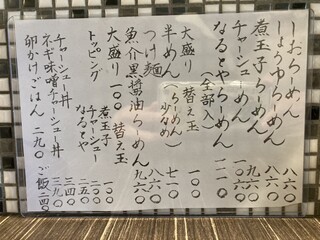 しおらーめん 八六〇
しょうゆらーめん 八六〇
煮玉子らーめん 九六〇
チャーシューめん
なるとやらーめん 一一六〇
(全部入)
大盛り 一〇〇
替え玉
半めん (らーめん少なめ) 七一〇
つけ麺 八六〇
魚介黒醤油らーめん 九六〇
大盛り 一〇〇
替え玉
トッピング
煮玉子 一〇〇
チャーシュー
なると
チャーシュー丼 三四〇
ネギ味噌チャーシュー丼 三九〇
卵かけごはん 二九〇
ご飯